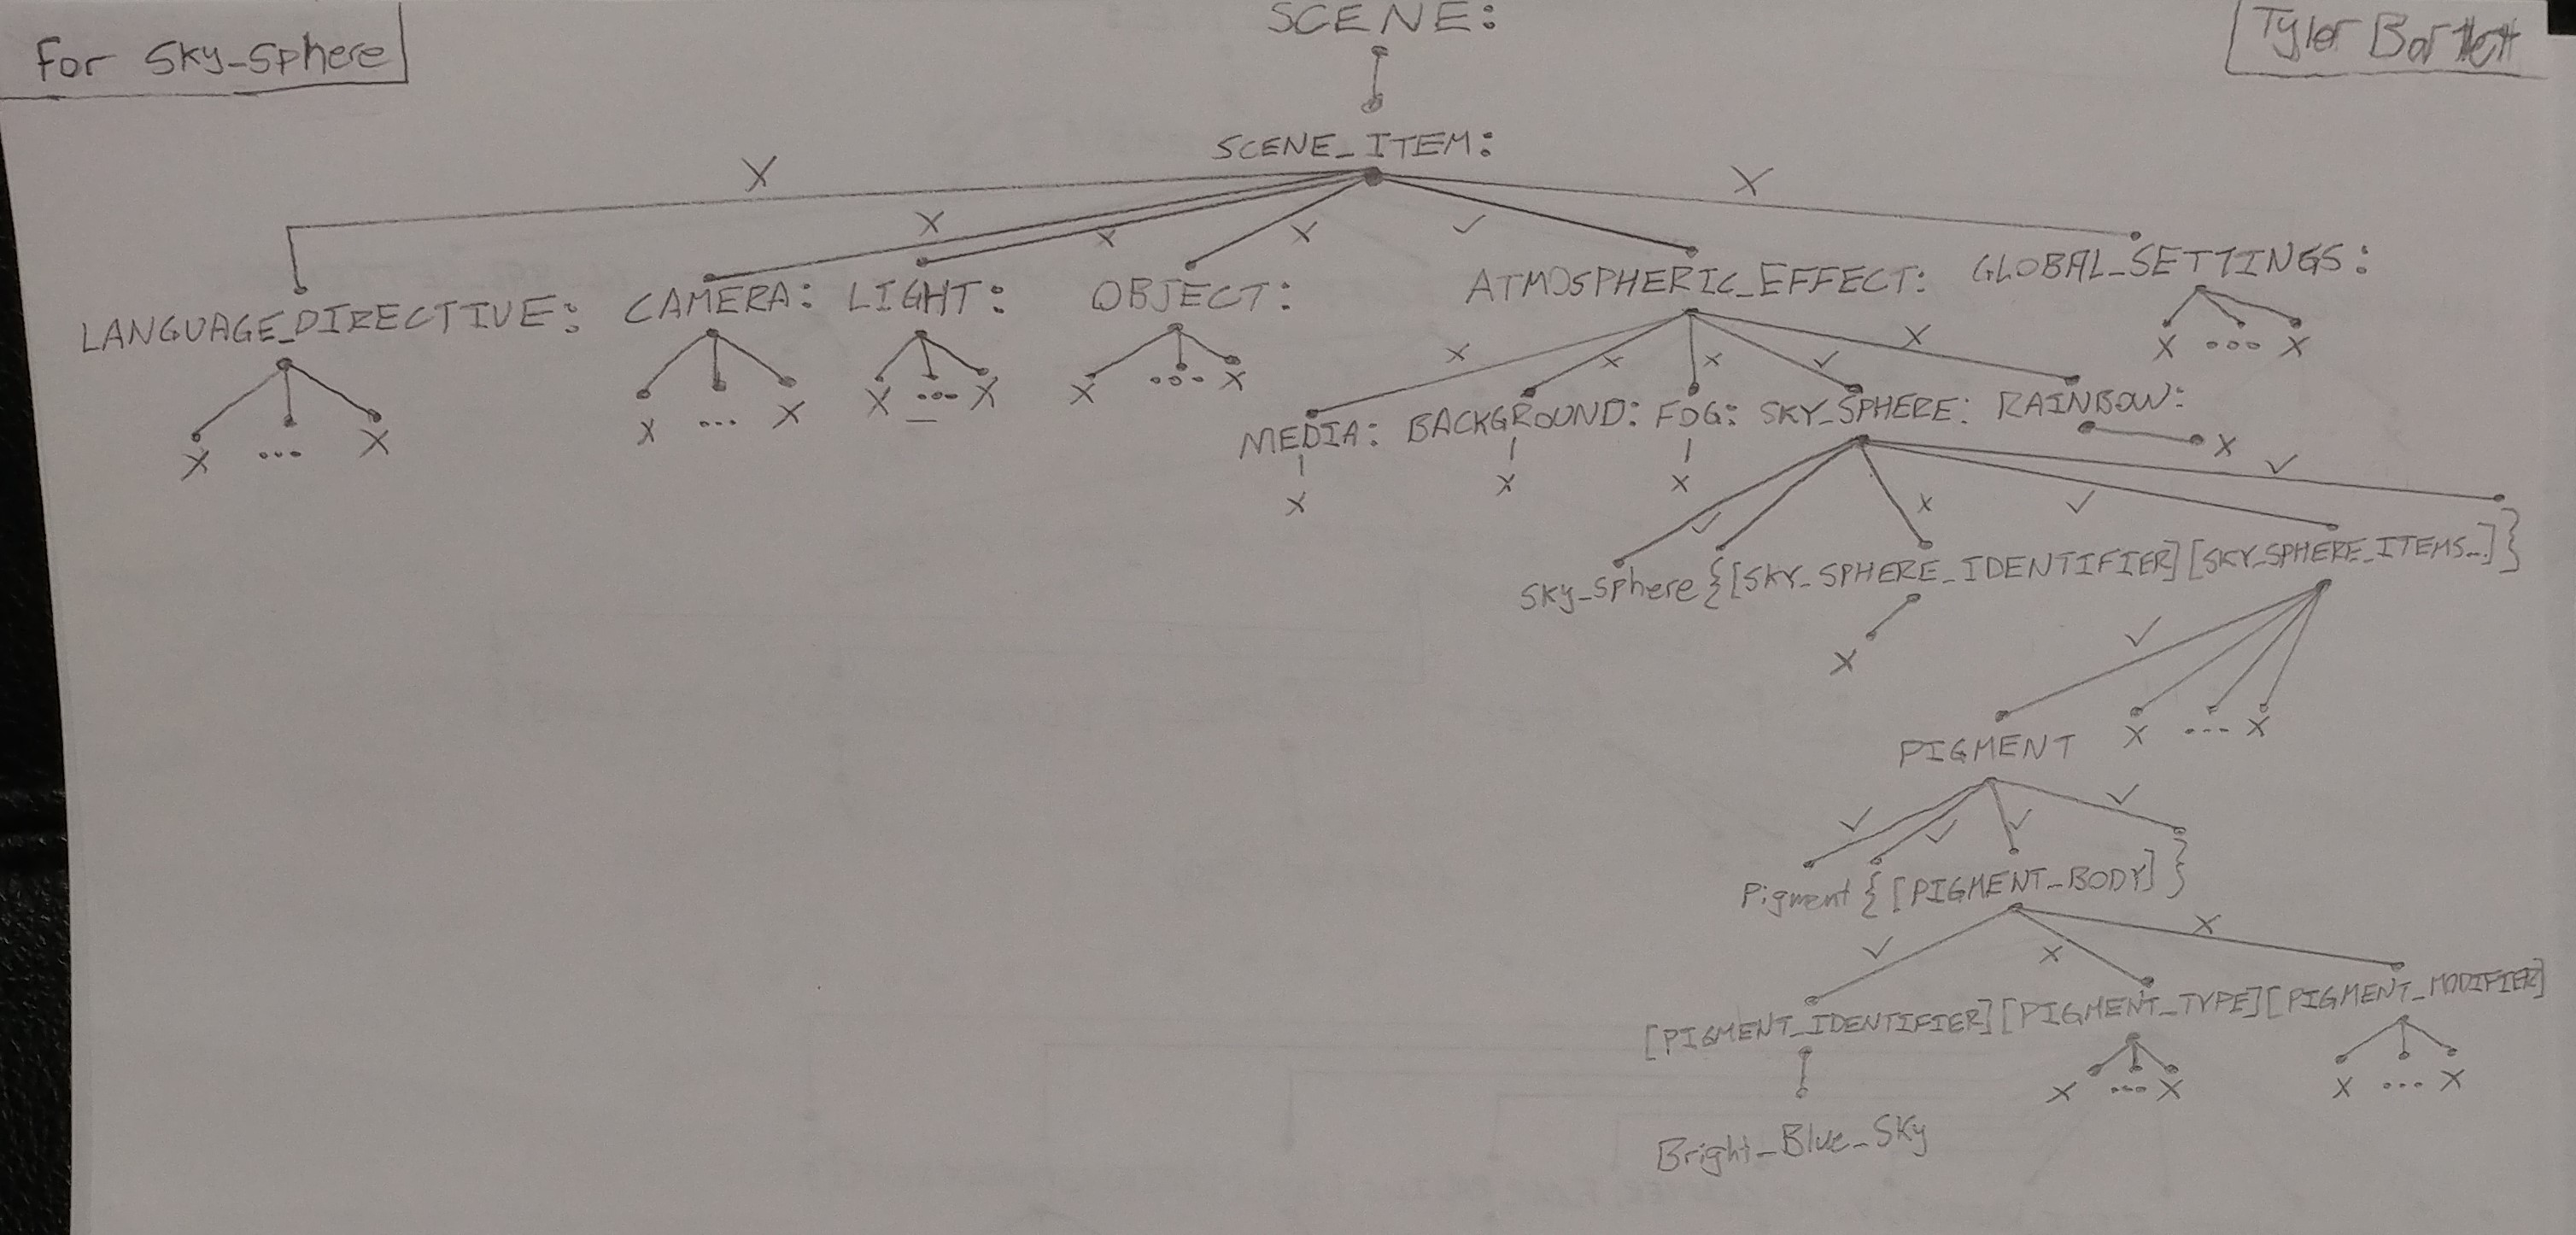 SCENE:
For Sky_Sphere
Tyler Bartlett
SCENE_ITEM:
X X X X ✓ X
LANGUAGE_DIRECTIVE: CAMERA: LIGHT: OBJECT: ATMOSPHERIC_EFFECT: GLOBAL_SETTINGS:
X ... X X ... X X ... X X ... X X ... X
X X X ✓ X
MEDIA: BACKGROUND: FOG: SKY_SPHERE: RAINBOW:
X X X X
✓ X ✓ ✓
Sky_Sphere {[SKY_SPHERE_IDENTIFIER][SKY_SPHERE_ITEMS...]}
X
✓
PIGMENT X ... X
✓ ✓ ✓ ✓
Pigment {[PIGMENT_BODY]}
✓ X X
[PIGMENT_IDENTIFIER][PIGMENT_TYPE][PIGMENT_MODIFIER]
X ... X X ... X
Bright_Blue_Sky